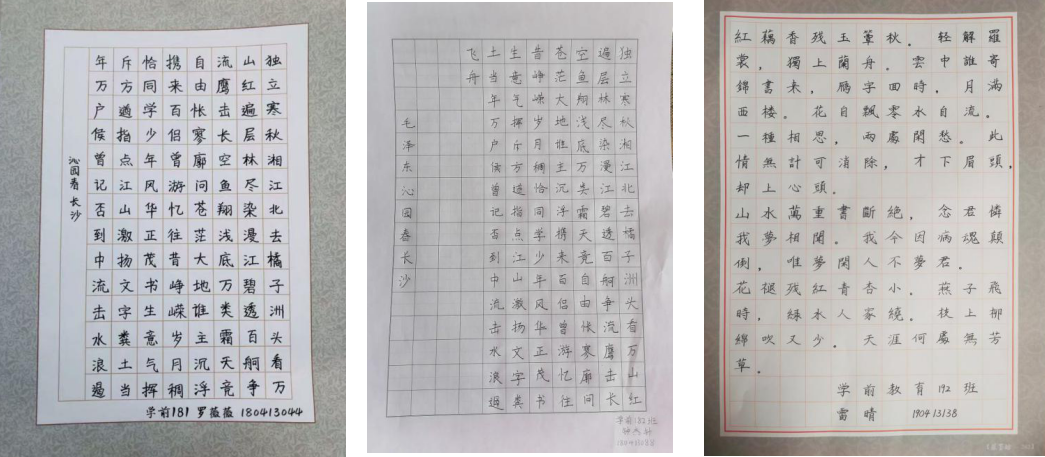 独立寒秋湘江北去橘子洲头看万
山红遍层林尽染漫江碧透百舸争
流鹰击长空鱼翔浅底万类霜天竞
自由怅寥廓问苍茫大地谁主沉浮
携来百侣曾游忆往昔峥嵘岁月稠
恰同学少年风华正茂书生意气挥
斥方遒指点江山激扬文字粪土当
年万户侯曾记否到中流击水浪遏
沁园春 长沙
学前181 罗薇薇 180413044
独立寒秋湘江北去橘子洲头看万山红
遍层林尽染漫江碧透百舸争流鹰击长
空鱼翔浅底万类霜天竞自由怅寥廓问
苍茫大地谁主沉浮携来百侣曾游忆往
昔峥嵘岁月稠恰同学少年风华正茂书
生意气挥斥方遒指点江山激扬文字粪
土当年万户侯曾记否到中流击水浪遏
飞舟
毛泽东沁园春长沙
学前182班
紅藕香残玉簟秋。轻解羅
裳，獨上蘭舟。雲中誰寄
錦書来，雁字回時，月滿
西楼。花自飘零水自流。
一種相思，兩處閑愁。此
情無計可消除，才下眉頭，
却上心頭。
山水萬重書斷絶，念君憐
我夢相聞。我今因病魂顛
倒，唯夢閑人不夢君。
花褪残紅青杏小。燕子飛
時，緑水人家繞。枝上柳
綿吹又少。天涯何處無芳
草。
学前教育192班
雷晴 190413138